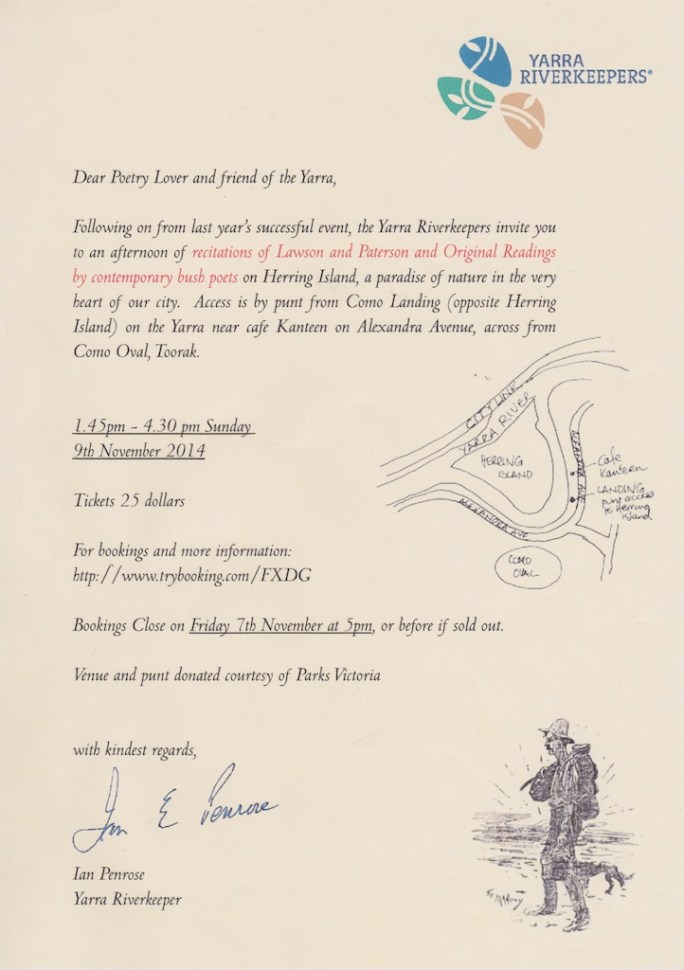 YARRA
RIVERKEEPERS®
Dear Poetry Lover and friend of the Yarra,
Following on from last year's successful event, the Yarra Riverkeepers invite you
to an afternoon of recitations of Lawson and Paterson and Original Readings
by contemporary bush poets on Herring Island, a paradise of nature in the very
heart of our city. Access is by punt from Como Landing (opposite Herring
Island) on the Yarra near cafe Kanteen on Alexandra Avenue, across from
Como Oval, Toorak.
1.45pm - 4.30 pm Sunday
9th November 2014
Tickets 25 dollars
For bookings and more information:
http://www.trybooking.com/FXDG
Bookings Close on Friday 7th November at 5pm, or before if sold out.
Venue and punt donated courtesy of Parks Victoria
CITYLINK
YARRA RIVER
HERRING
ISLAND
ALEXANDRA AVE
Cafe
Kanteen
LANDING
punt access
to Herring
Island
ALEXANDRA AVE
COMO
OVAL
with kindest regards,
Ian E Penrose
Ian Penrose
Yarra Riverkeeper